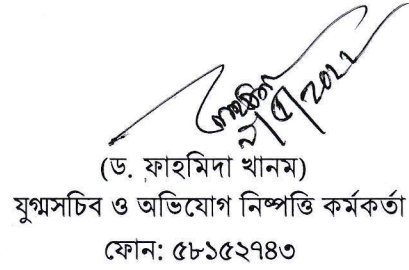 (ড. ফাহমিদা খানম)
যুগ্মসচিব ও অভিযোগ নিষ্পত্তি কর্মকর্তা
ফোন: ৫৮১৫২৭৪৩